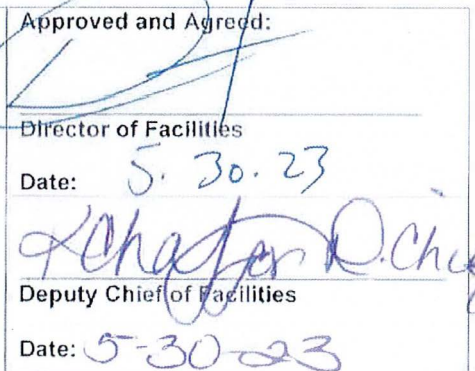 Approved and Agreed:
Director of Facilities
Date: 5. 30. 23
D. Chief
Deputy Chief of Facilities
Date: 5-30-23